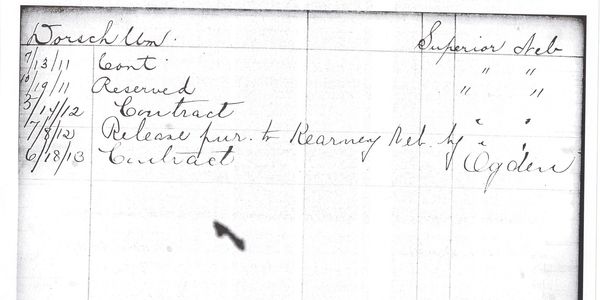 Dorsch Wm. Superior Neb
7/13/11 Cont " "
10/19/11 Reserved " "
5/14/12 Contract " "
7/8/12 Release pur. to Kearney Neb. by "
6/18/13 Contract Ogden